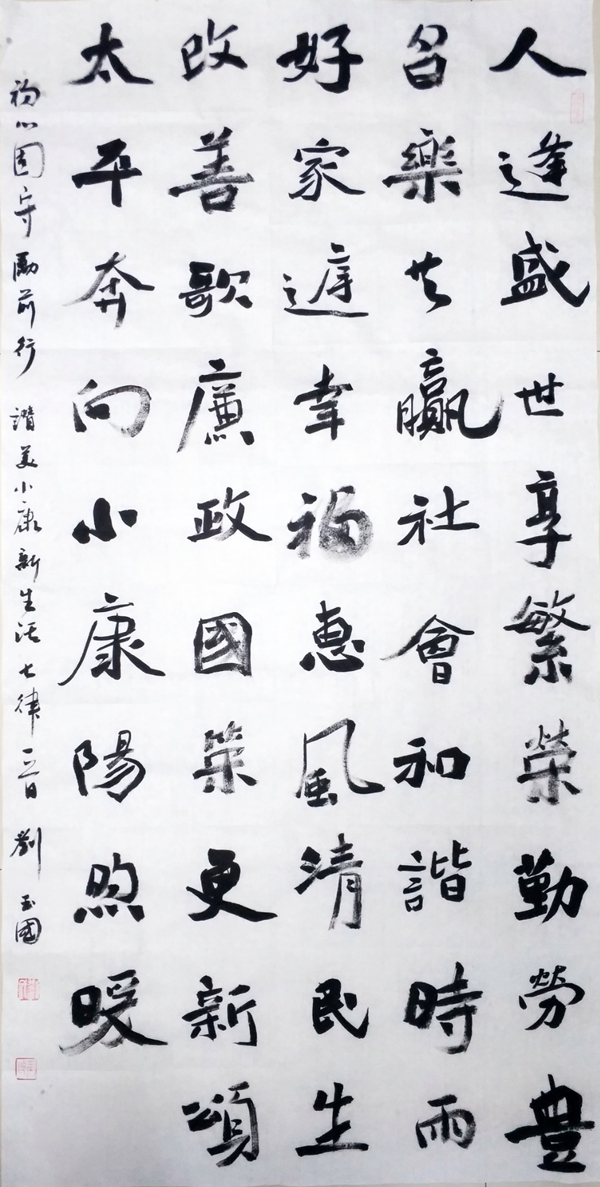 人逢盛世享繁榮勤勞豊
樂共贏社會和諧時雨
好家庭幸福惠風清民生
改善歌廉政國策更新頌
太平奔向小康陽煦暖
初心固守勵前行 讚美小康新生活七律一首 劉玉國